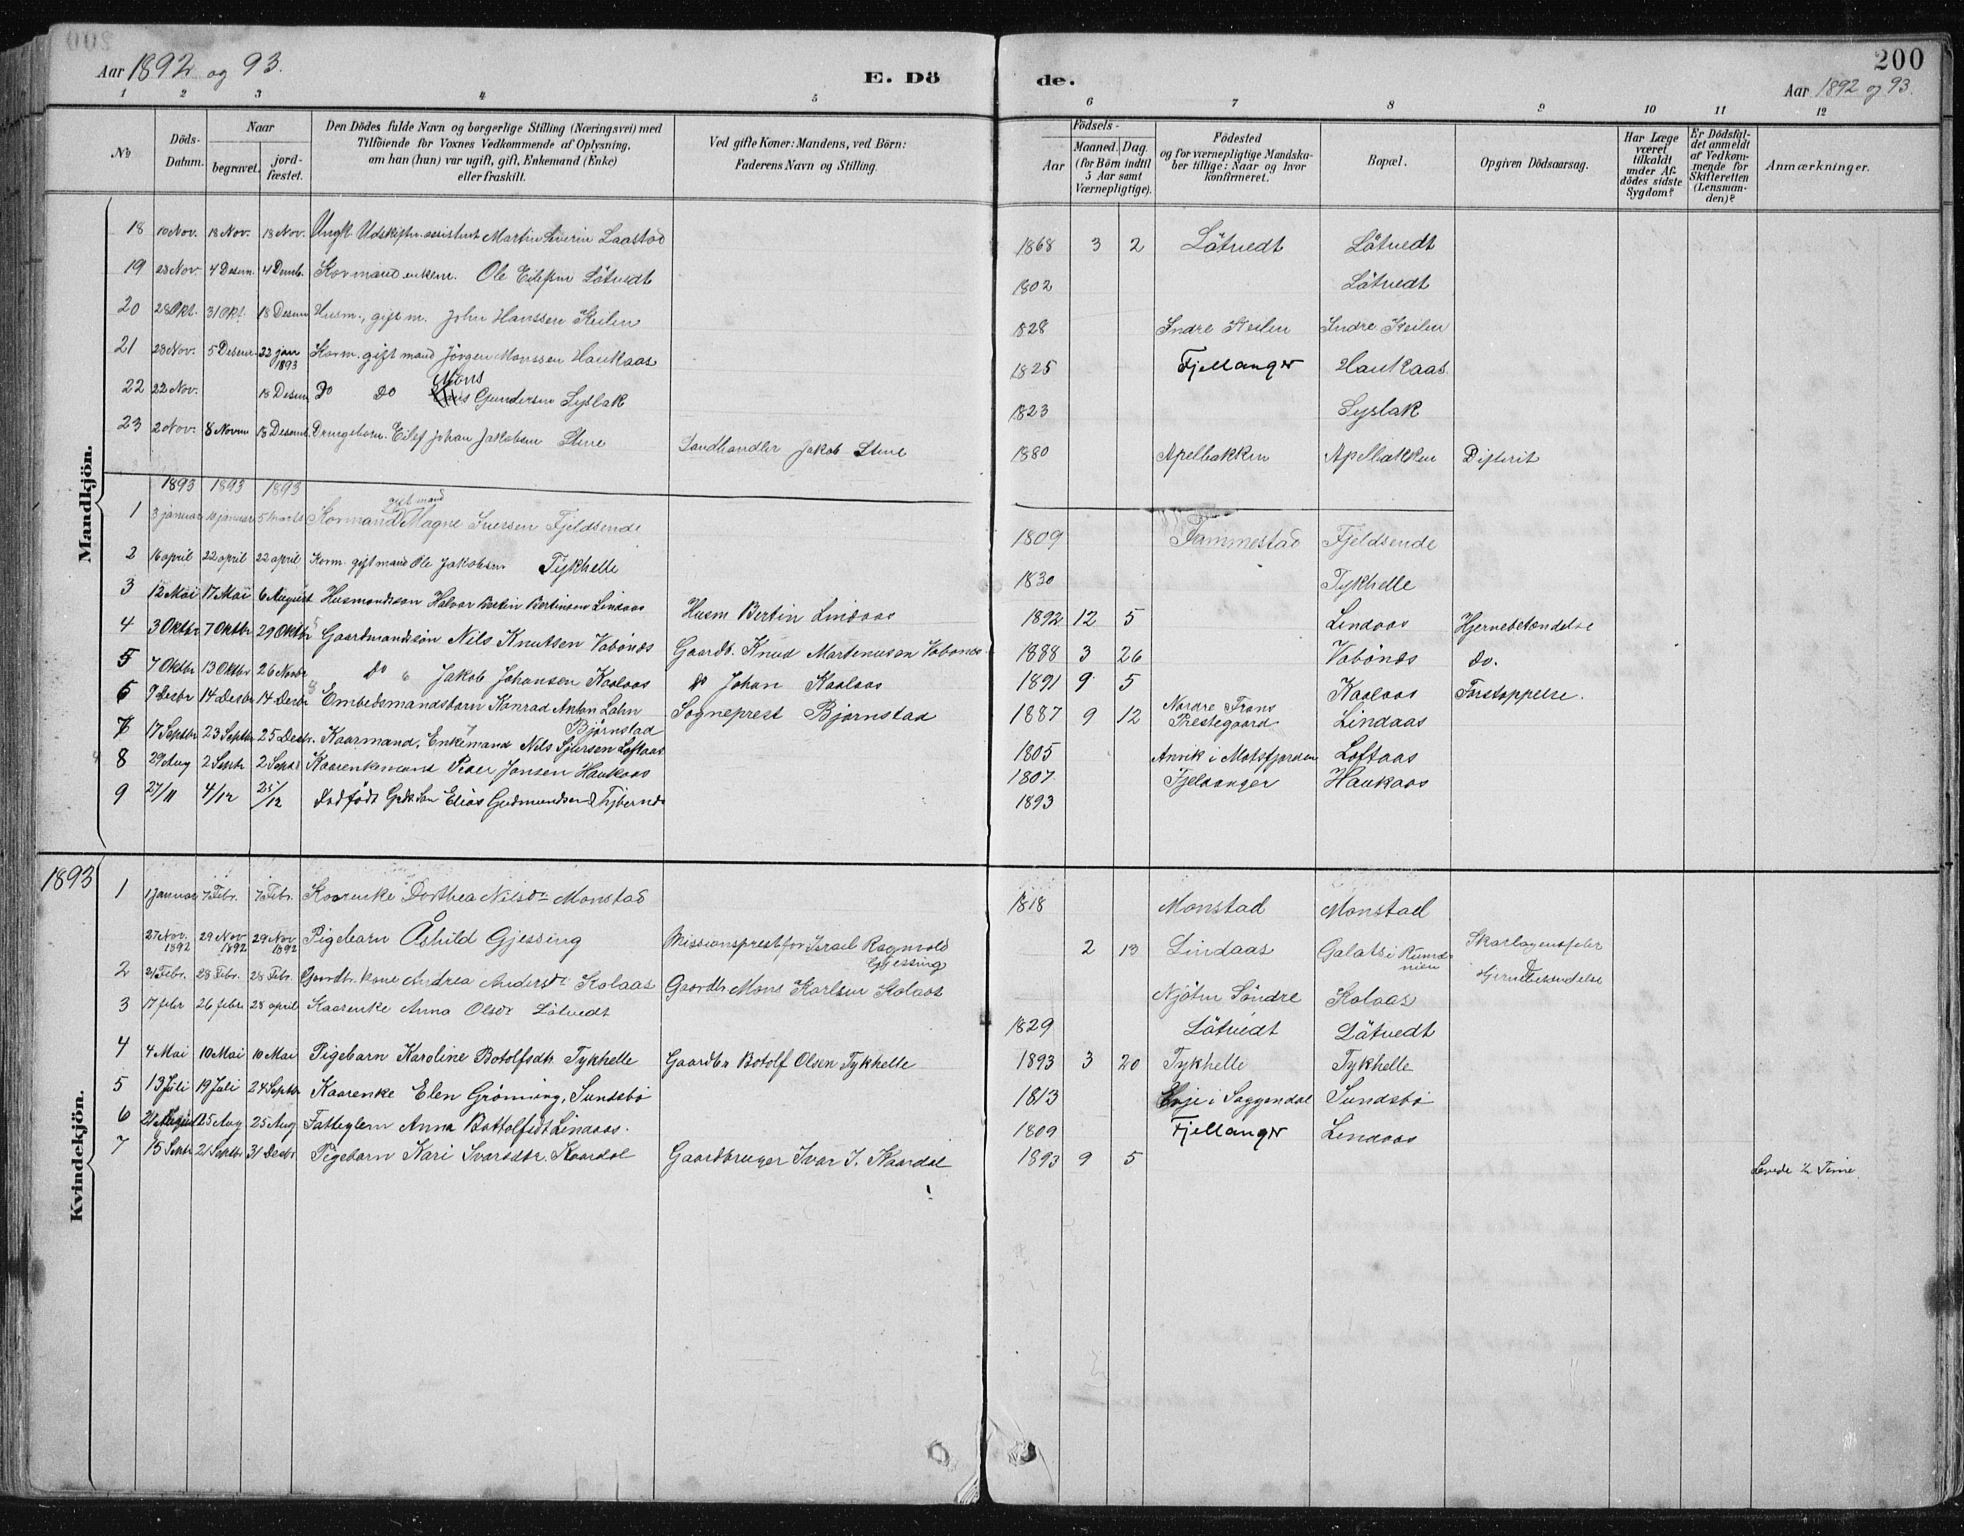 200
Aar 1892 og 93.
E. Dö
de.
Aar 1892 og 93.
1 2 3 4 5 6 7 8 9 10 11 12
No
Döds-Datum.
Naar
begravet.
jord-fæstet.
Den Dödes fulde Navn og borgerlige Stilling (Næringsvei) med
Tilföiende for Voxnes Vedkommende af Oplysning,
om han (hun) var ugift, gift, Enkemand (Enke)
eller fraskilt.
Ved gifte Koner: Mandens, ved Börn:
Faderens Navn og Stilling.
Födsels-
Aar
Maaned. Dag.
(for Börn indtil
5 Aar samt
Værnepligtige).
Födested
og for værnepligtige Mandska-
ber tillige: Naar og hvor
konfirmeret.
Bopæl.
Opgiven Dödsaarsag.
Har Læge
været
tilkaldt
under Af-
dödes sidste
Sygdom?
Er Dödsfal-
det anmeldt
af Vedkom-
mende for
Skifteretten
(Lensman-
den)?
Anmærkninger.
Mandkjön.
18 10 Nov. 18 Nov. 18 Nov. Ungk. Udskiftn.assistent Martin Severin Laastad 1868 3 2 Låtvedt Låtvedt
19 23 Nov. 4 Desem. 4 Desemb. Kormand enkem. Ole Eilefsen Låtvedt 1802 Låtvedt
20 28 Okt. 31 Okt. 18 Desem Husm., gift m. John Hanssen Keilen 1828 Indre Keilen Indre Keilen
21 23 Nov. 5 Desem. 22 jan 1893 Korm. gift mand Jörgen Monssen Haukaas 1825 Fjellanger Haukaas
22 22 Nov. 18 Desem Do Do Mons Gundersen Syslak 1823 Syslak
23 2 Nov. 8 Novem 18 Desemb. Drengebarn. Eilef Johan Jakobsen Stene Landhandler Jakob Stene 1880 Apelbakken Apelbakken Difterit
1893 1893 1893
1 3 januar 10 januar 5 marts Kormand gift mand Magne Iversen Fjeldsende 1809 Fammestad Fjeldsende
2 16 april 22 april 22 april Korm. gift mand Ole Jakobsen Tykhelle 1830 Tykhelle
3 12 Mai 17 Mai 6 August Husmandssön Halvor Bertin Bertinsen Lindaas Husm Bertin Lindaas 1892 12 5 Lindaas Hjernebetændelse
4 3 Oktbr 7 Oktbr 29 Oktbr Gaardmandssön Nils Knutsen Vabönds Gaardb. Knud Martinusen Vabönds 1888 3 26 Vabönds do.
5 7 Oktbr 13 Oktbr 26 Novbr do " Jakob Johansen Kaalaas do Johan Kaalaas 1891 9 5 Kaalaas Forstoppelse.
6 7 Desbr 14 Desbr 14 Desbr Embedsmandsbarn Konrad Anton Lahn Bjørnstad Sogneprest Bjørnstad 1887 9 12 Nordre Frons Prestegaard Lindaas
7 17 Septbr 23 Septbr 25 Desbr. Kaarmand, Enkemand Nils Sjursen Loftaas 1805 Anvik i Matsfjorden Loftaas
8 29 Aug 2 Septr 2 Septr Kaarenkemand Peder Jansen Haukaas 1807 Fjellanger Haukaas
9 27/11 4/12 25/12 Dødfödt Gbrk Søn Elias Gudmundsen 1893
Kvindekjön.
1893
1 1 Januar 7 Febr. 7 Febr. Kaarenke Dorthea Nilsdr Monstad 1818 Monstad Monstad
27 Nov. 1892 29 Nov 1892 29 Nov 1892 Pigebarn Åshild Gjessing Missionsprest for Israel Ragnvald Gjessing 2 13 Lindaas Galatz i Rumænien Skarlagensfeber & Hjernebetændelse
2 21 Febr. 28 Febr. 28 Febr. Gaardbr. kone Andrea Andersdr Kolaas Gaardbr Mons Karlsen Kolaas Njötn Söndre Kolaas
3 17 febr 26 febr 28 april Kaarenke Anna Olsdr Låtvedt 1829 Låtvedt Låtvedt
4 4 Mai 10 Mai 10 Mai Pigebarn Karoline Botolfsdtr. Tykhelle Gaardbr Botolf Olsen Tykhelle 1893 3 20 Tykhelle Tykhelle
5 13 Juli 19 Juli 24 Septbr Kaarenke Elen Gröning, Sundsbö 1813 Evje i Saggendal Sundsbö
6 21 August 25 Aug 25 Aug Fattiglem Anna Bottolfsdt Lindaas. 1809 Fjellanger Lindaas
7 15 Septbr 21 Septbr 31 Desbr Pigebarn Kari Ivarsdtr. Kaardal Gaardbruger Ivar J. Kaardal 1893 9 5 Levede ½ Time.